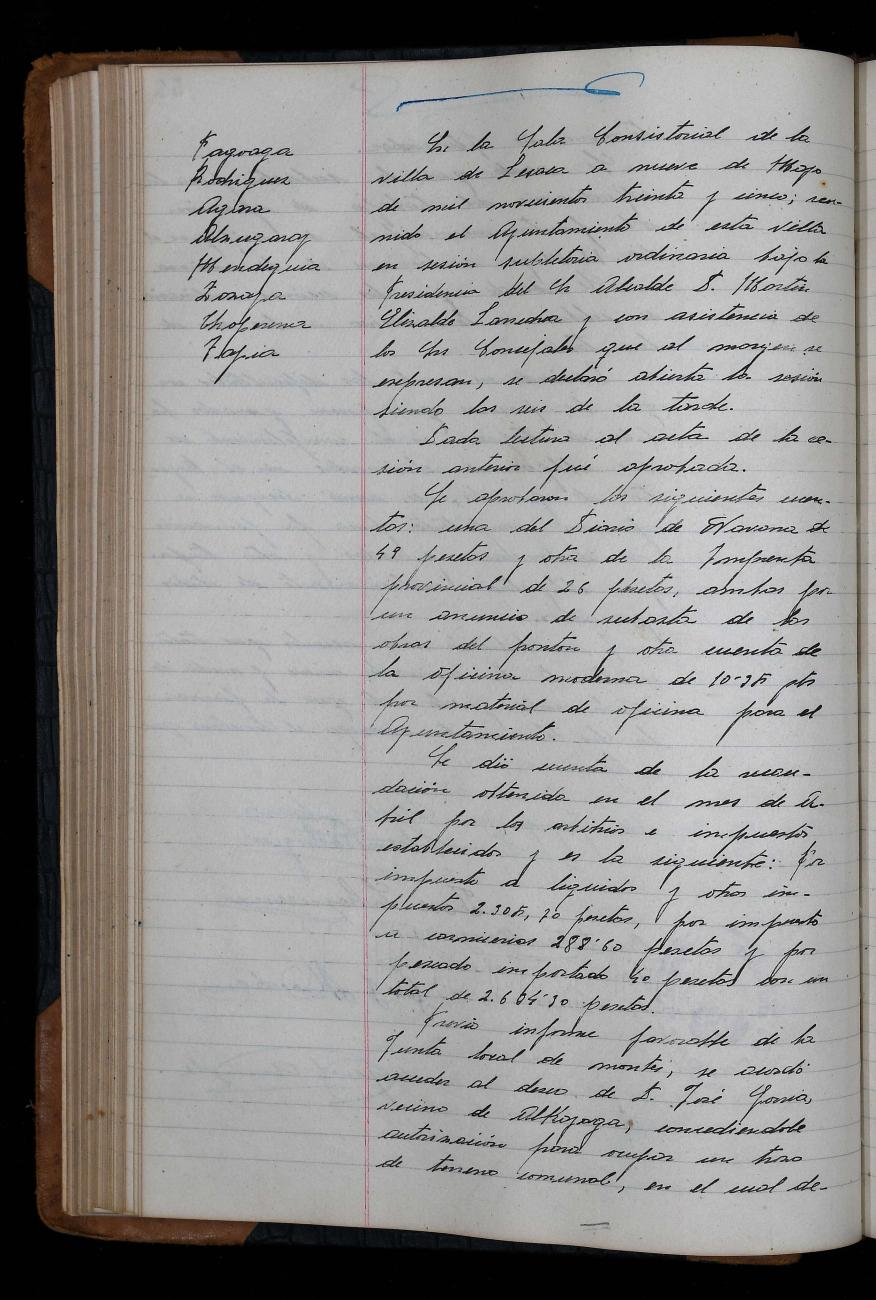 Fagoaga
Rodriguez
Azpa
Alzugaray
Mendiguia
Zozaya
Choperena
Tapia
En la Sala Consistorial de la
villa de Lesaca a nueve de Mayo
de mil novecientos treinta y cinco; reu-
nido el Ayuntamiento de esta villa
en sesión supletoria ordinaria bajo la
Presidencia del Sr Alcalde D. Martin
Elizalde Lanchea y con asistencia de
los Srs Concejales que al margen se
expresan, se declaró abierta la sesión
siendo las seis de la tarde.
Dada lectura al acta de la se-
sión anterior fué aprobada.
Se aprobaron las siguientes cuen-
tas: una del Diario de Navarra de
49 pesetas y otra de la Imprenta
provincial de 26 pesetas, ambas por
un anuncio de subasta de las
obras del ponton y otra cuenta de
la oficina moderna de 10-35 pts
por material de oficina para el
Ayuntamiento.
Se dió cuenta de la recau-
dación obtenida en el mes de A-
bril por los arbitrios e impuestos
establecidos y es la siguiente: Por
impuesto a liquidos y otros im-
puestos 2.305,70 pesetas, por impuesto
a carnicerias 288'60 pesetas y por
pescado importado 40 pesetas con un
total de 2.634'30 pesetas.
Previo informe favorable de la
Junta local de montes, se acordó
acceder al deseo de D. José Goñia,
vecino de Alkayaga, concediendole
autorización para ocupar un trozo
de terreno comunal, en el cual de-